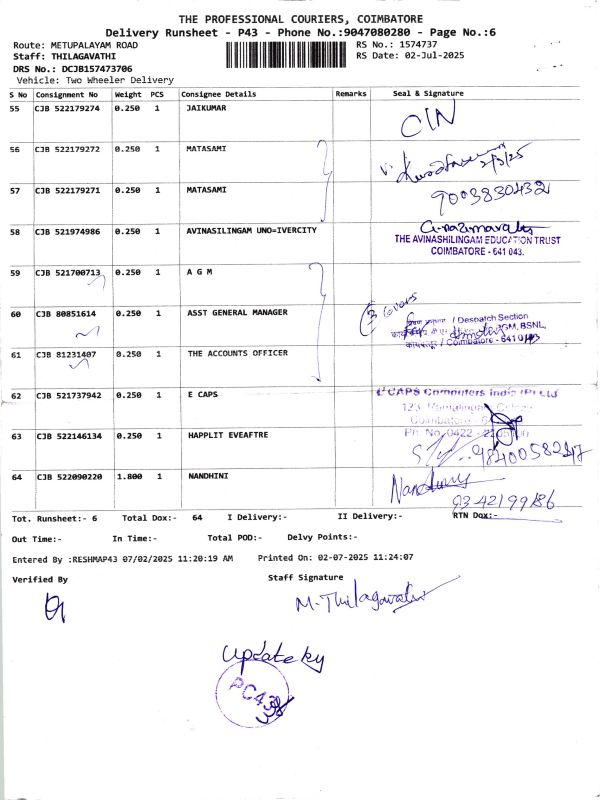 THE PROFESSIONAL COURIERS, COIMBATORE
Delivery Runsheet - P43 - Phone No.:9047080280 - Page No.:6
Route: METUPALAYAM ROAD
RS No.: 1574737
Staff: THILAGAVATHI
RS Date: 02-Jul-2025
DRS No.: DCJB157473706
Vehicle: Two Wheeler Delivery
S No Consignment No Weight PCS Consignee Details Remarks Seal & Signature
55 CJB 522179274 0.250 1 JAIKUMAR
56 CJB 522179272 0.250 1 MATASAMI
57 CJB 522179271 0.250 1 MATASAMI
9003830432
58 CJB 521974986 0.250 1 AVINASILINGAM UNO=IVERCITY
THE AVINASHILINGAM EDUCATION TRUST
COIMBATORE - 641 043.
59 CJB 521700713 0.250 1 A G M
60 CJB 80851614 0.250 1 ASST GENERAL MANAGER
3 Covers
/ Despatch Section
BSNL,
/ Coimbatore - 641 043
61 CJB 81231407 0.250 1 THE ACCOUNTS OFFICER
62 CJB 521737942 0.250 1 E CAPS
E CAPS Computers India (P) Ltd
63 CJB 522146134 0.250 1 HAPPLIT EVEAFTRE
64 CJB 522090220 1.800 1 NANDHINI
Tot. Runsheet:- 6 Total Dox:- 64 I Delivery:- II Delivery:- RTN Dox:-
Out Time:- In Time:- Total POD:- Delvy Points:-
Entered By :RESHMAP43 07/02/2025 11:20:19 AM Printed On: 02-07-2025 11:24:07
Verified By
Staff Signature
M. Thilagavathi
Update by
PC43